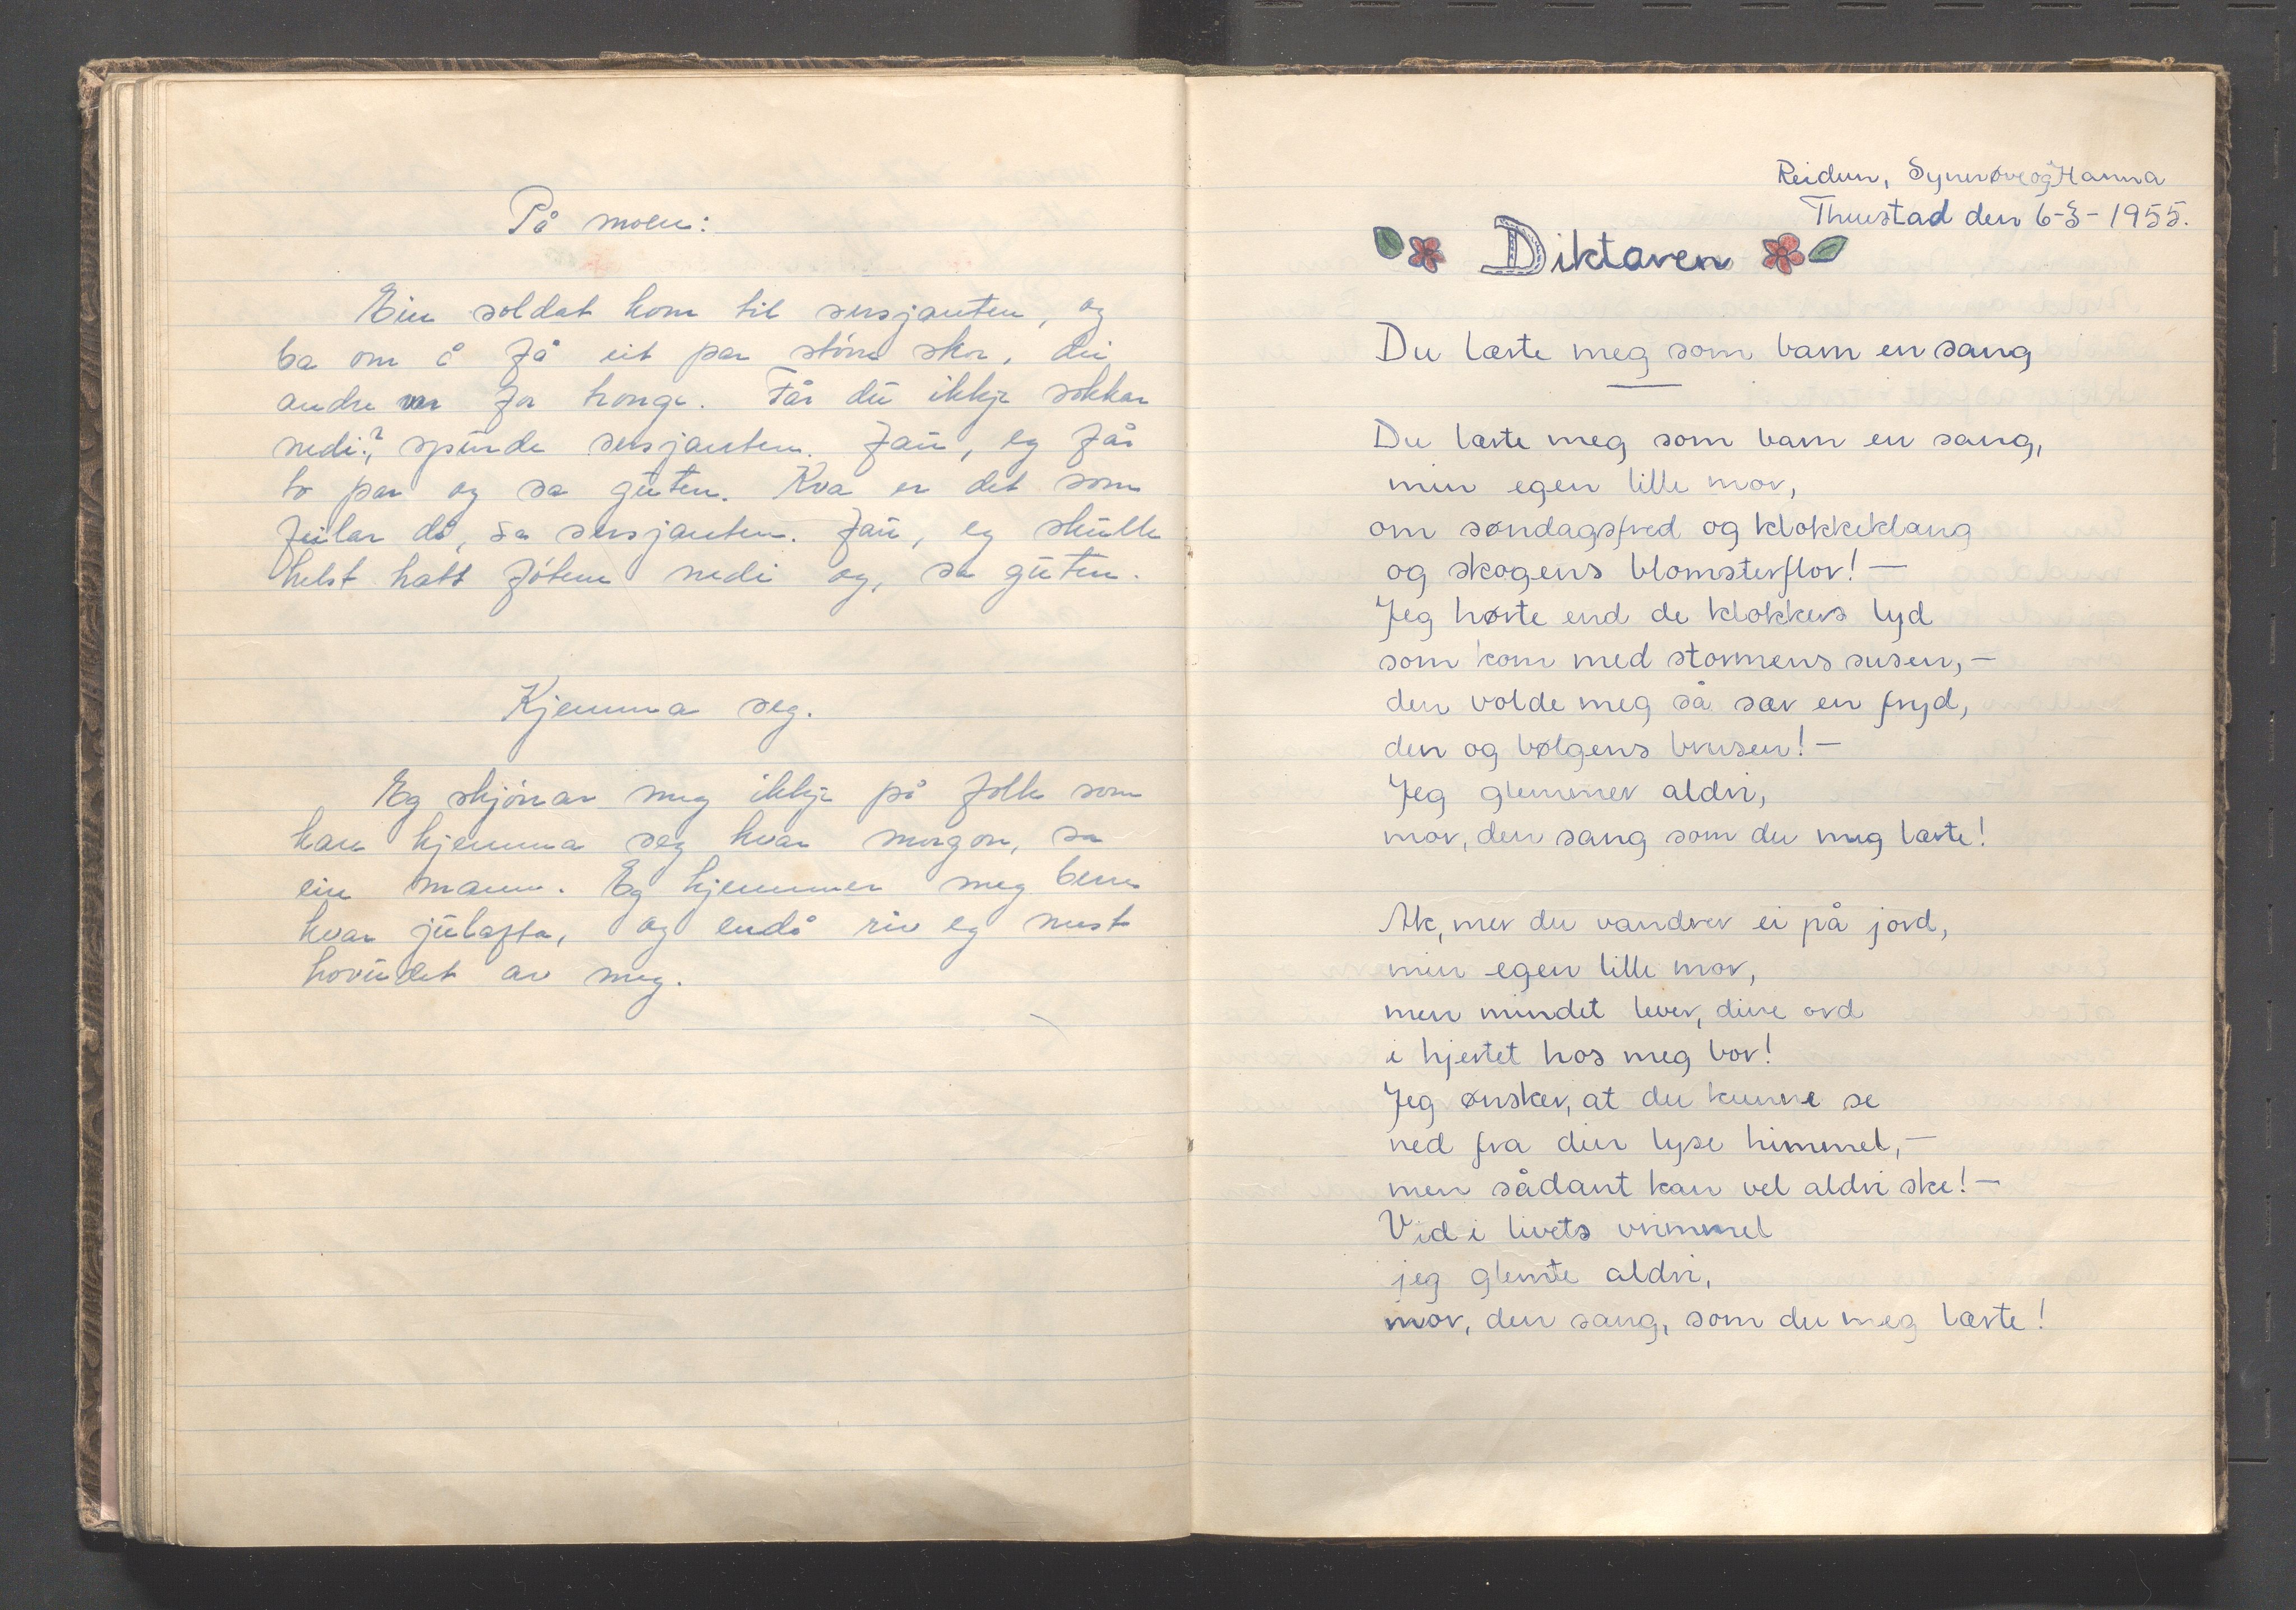 På moen:
Ein soldat kom til sersjanten, og
ba om å få eit par større skor, dei
andre var for tronge. Får du ikkje sokkar
nedi?, spurde sersjanten. Jau, eg får
to par og sa guten. Kva er det som
feilar då, sa sersjanten. Jau, eg skulle
helst hatt fótene nedi og, sa guten.
Kjemma seg.
Eg skjónar meg ikkje på folk som
kan kjemma seg kvar morgon, sa
ein mann. Eg kjemmer meg berre
kvar julafta, og endå riv eg mest
hovudet av meg.
Reidun, Synnøve og Hanna
Thuestad den 6-3-1955.
Diktaren
Du lærte meg som barn en sang
Du lærte meg som barn en sang,
min egen lille mor,
om søndagsfred og klokkeklang
og skogens blomsterflor! —
Jeg hørte end de klokkers lyd
som kom med stormens susen, —
den volde meg så sær en fryd,
den og bølgens brusen! —
Jeg glemmer aldri,
mor, den sang som du meg lærte!
Ak, mer du vandrer ei på jord,
min egen lille mor,
men mindet lever, dine ord
i hjertet hos meg bor!
Jeg ønsker, at du kunne se
ned fra din lyse himmel, —
men sådant kan vel aldri ske! —
Vid i livets vrimmel
jeg glemte aldri,
mor, den sang, som du meg lærte!